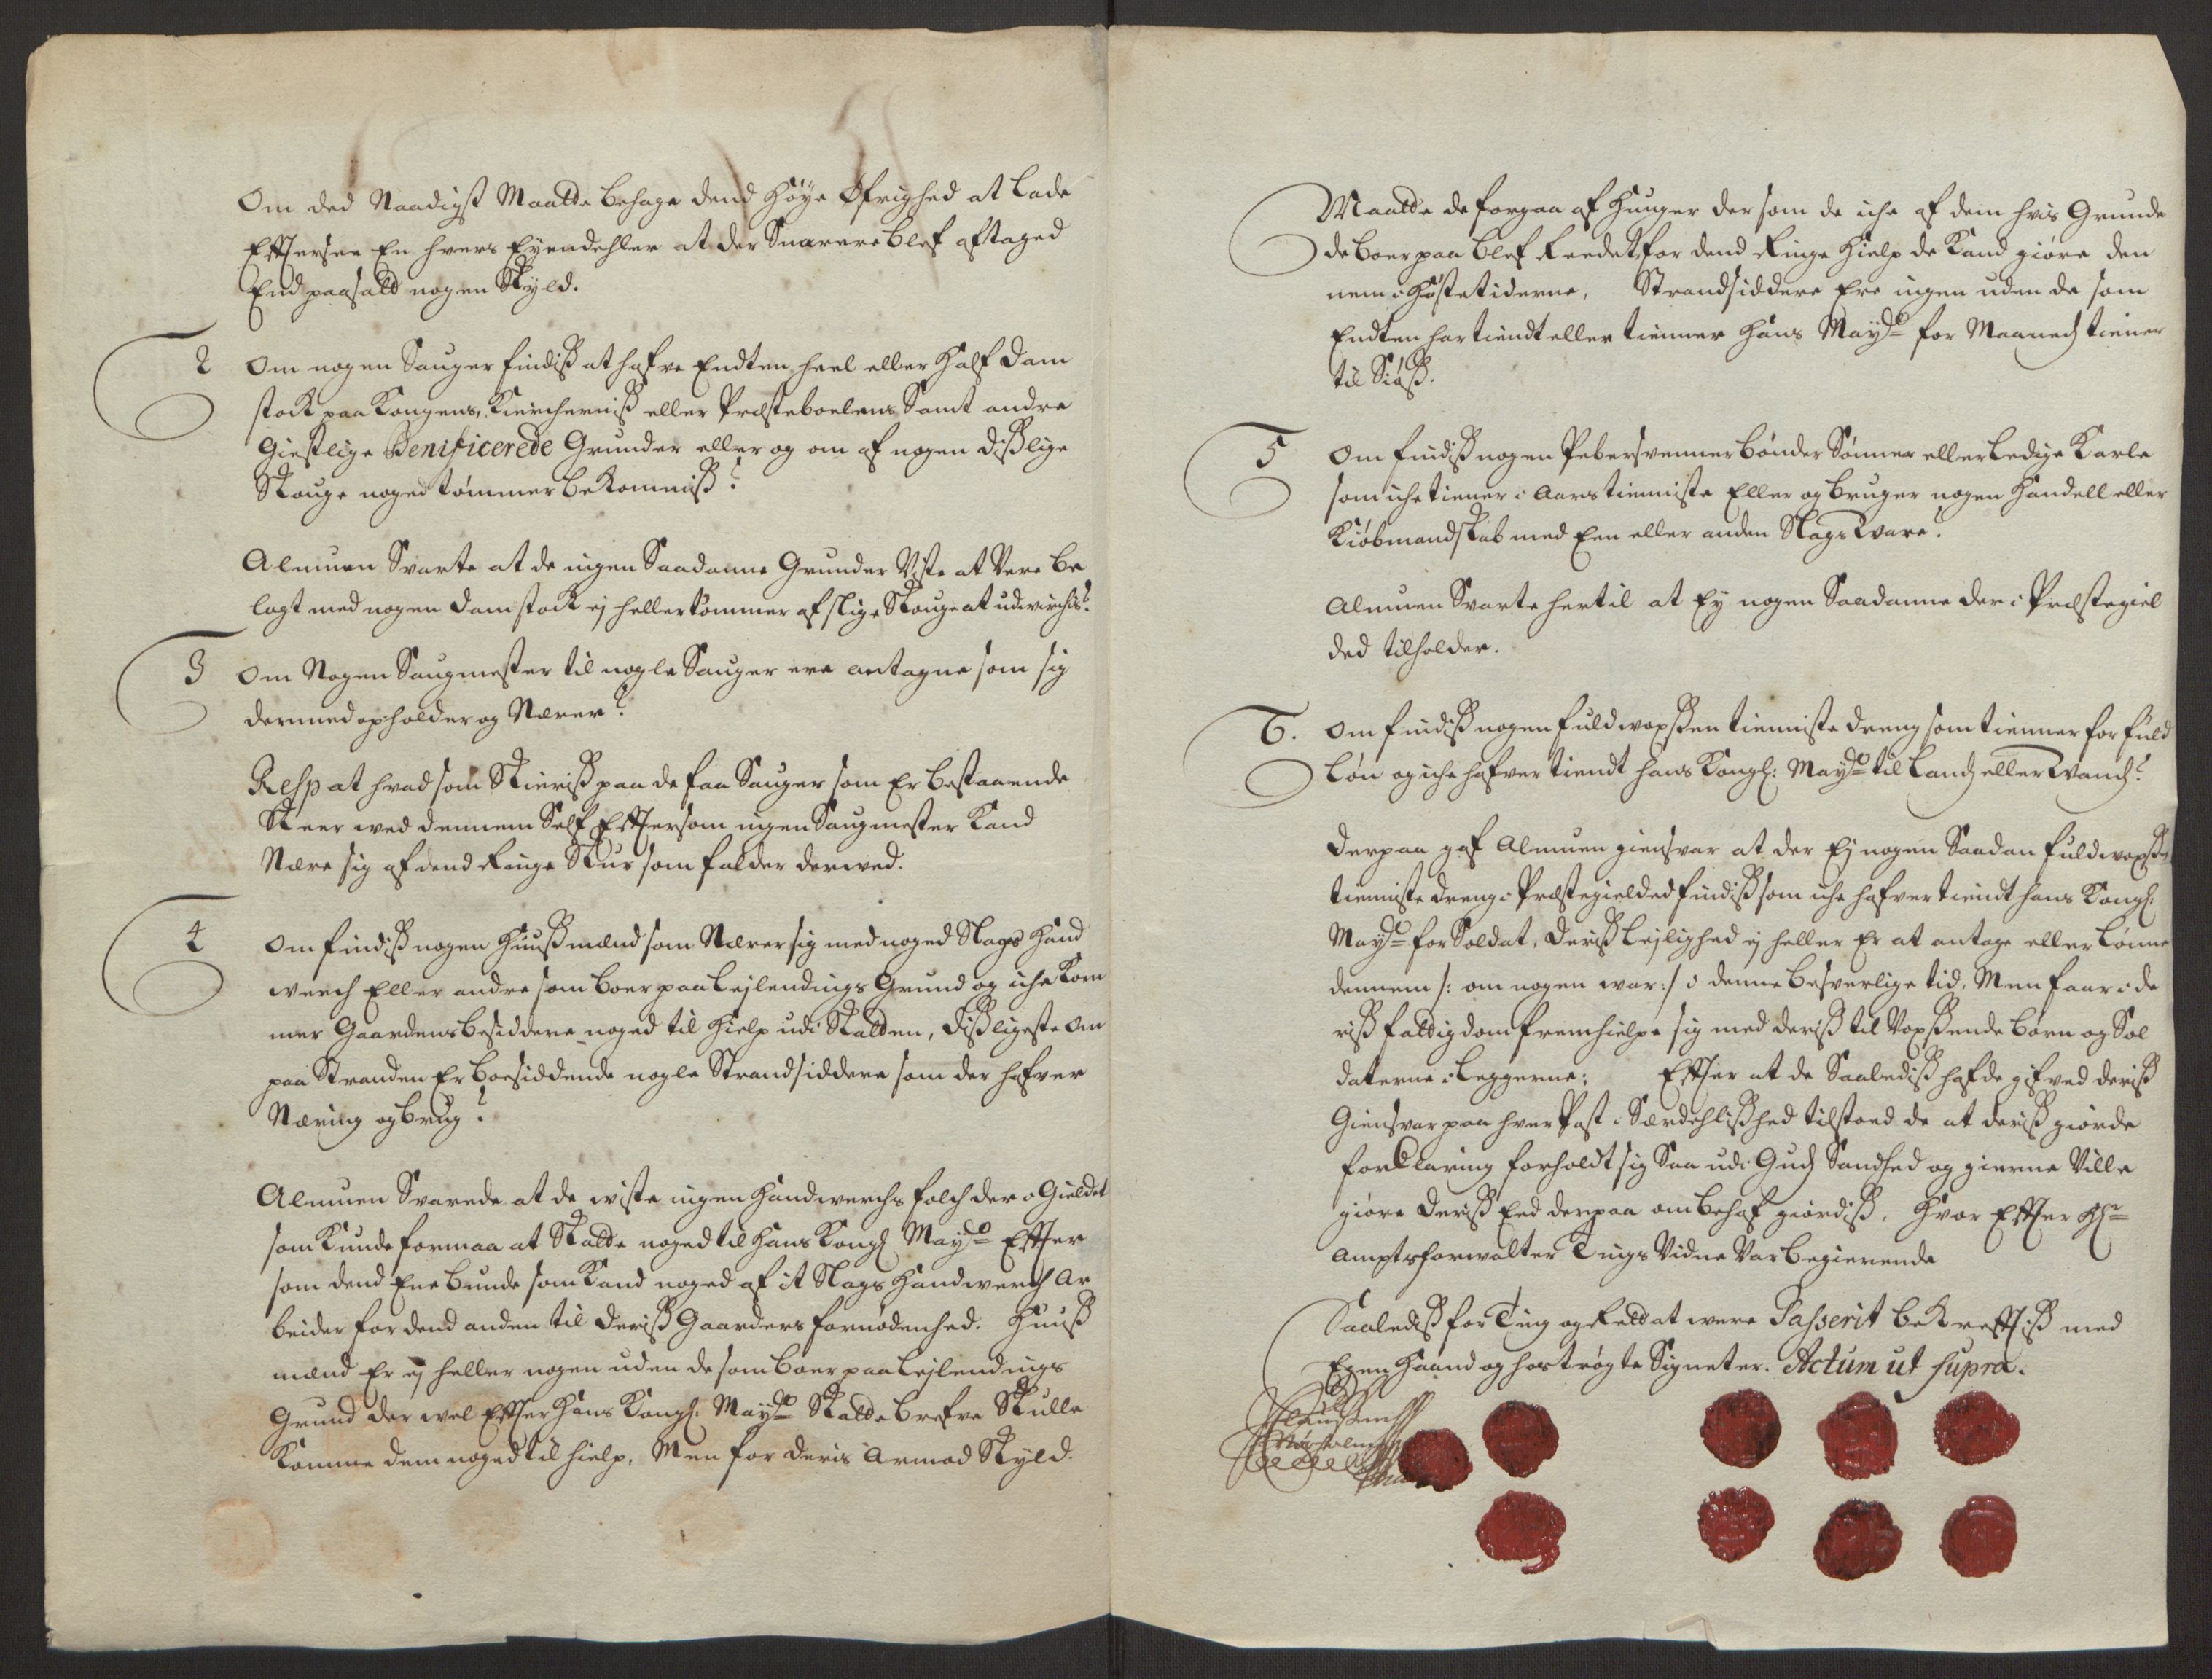 Om ded Naadigst Maatte behage dend Høye Øfrighed at lade
Effterse En hvers Eyendehler at der Snarere blef aftaged
End paasatt nogen Skyld.
2 Om nogen Sauger findiß at hafve Endten heel eller Half dam
stock paa Kongens, Kiercherniß eller Præsteboelens Samt andre
Giestlige Benificerede Grunder eller og om af nogen dißlige
Skouge noged tømmer bekommiß?
Almuen Svarte at de ingen Saadanne Grunder Viste at Vere be
lagt med nogen damstock ej heller tømmer af slige Skouge at udvirchis?
3 Om Nogen Saugmester til nogle Sauger ere antagne som sig
dermed opholder og Nærer?
Resp at hvad som Skieriß paa de faa Sauger som Er bestaaende
Skeer ved dennem Self Efftersom ingen Saugmester Kand
Nære sig af dend Ringe Skur som falder derved.
4 Om findiß nogen Huußmænd som Nærer sig med noged Slags Hand
verch Eller andre som boer paa Lejlendings Grund og iche kom
mer Gaardens besiddere noged til Hielp udi Skatten, Dißligeste om
paa Stranden Er boesiddende nogle Strandsiddere som der hafver
Næring og brug?
Almuen Svarede at de viste ingen Handverchs folch der i Gieldet
som Kunde formaa at Skatte noged til Hans Kongl May:tt Effter
som dend Ene bunde som Kand noged af it Slags Handverch Ar
beider for dend anden til deriß Gaarders fornødenhed. Huuß
mænd Er ej heller nogen uden de som boer paa Lejlendings
Grund der vel Effter Hans Kongl: May:tt Skattebrefve Skulle
Komme dem noged til hielp, Men for deris Armod Skyld
Maatte de forgaa af Hunger dersom de iche af dem hvis Grunde
de boer paa blef Reedet, for dend Ringe Hielp de Kand giøre den
nem i Høstetiderne, Strandsiddere Ere ingen uden de som
Endten har tiendt eller tienner Hans May:tt for Maaneds tiener
til Siøß.
5 Om findiß nogen Pebersvenner bønder Sønner eller Ledige Karle
som iche tiener i Aars tienniste Eller og bruger nogen Handell eller
Kiøbmandskab med Een eller anden Slags Vare?
Almuen Svarte hertil at Ey nogen Saadanne der i Præstegiel
ded tilholder.
6. Om findiß nogen fuldvoxßen tienniste dreng som tienner for fuld
Løn og iche hafver tiendt hans Kongl: May:tt til Lands eller Vands?
Derpaa gaf Almuen giensvar at der Ej nogen Saadan fuldvoxßen
tienniste dreng i Præstegieldet findiß som iche hafver tiendt hans Kongl:
May:tt for Soldat, deriß Lejlighed ej heller Er at antage eller Lønne
dennem /: om nogen var :/ i denne besverlige tid, Men faar i de
riß fattigdom fremhielpe sig med deriß til Voxßende børn og Sol
daterne i Leggerne; Effter at de Saaledis hafde gifved deriß
Giensvar paa hver Post i Særdehlißhed tilstoed de at deriß giørde
forklaring forholdt sig Saa udi Guds Sandhed og gierne Ville
giøre deriß Eed derpaa om behof giørdiß, Hvor Effter Hr
Amptsforvalter Tings Vidne Var begierende
Saalediß for Ting og Rett at were Passerit bekreffttiß med
Egen Haand og hostrøgte Signeter. Actum ut supra.